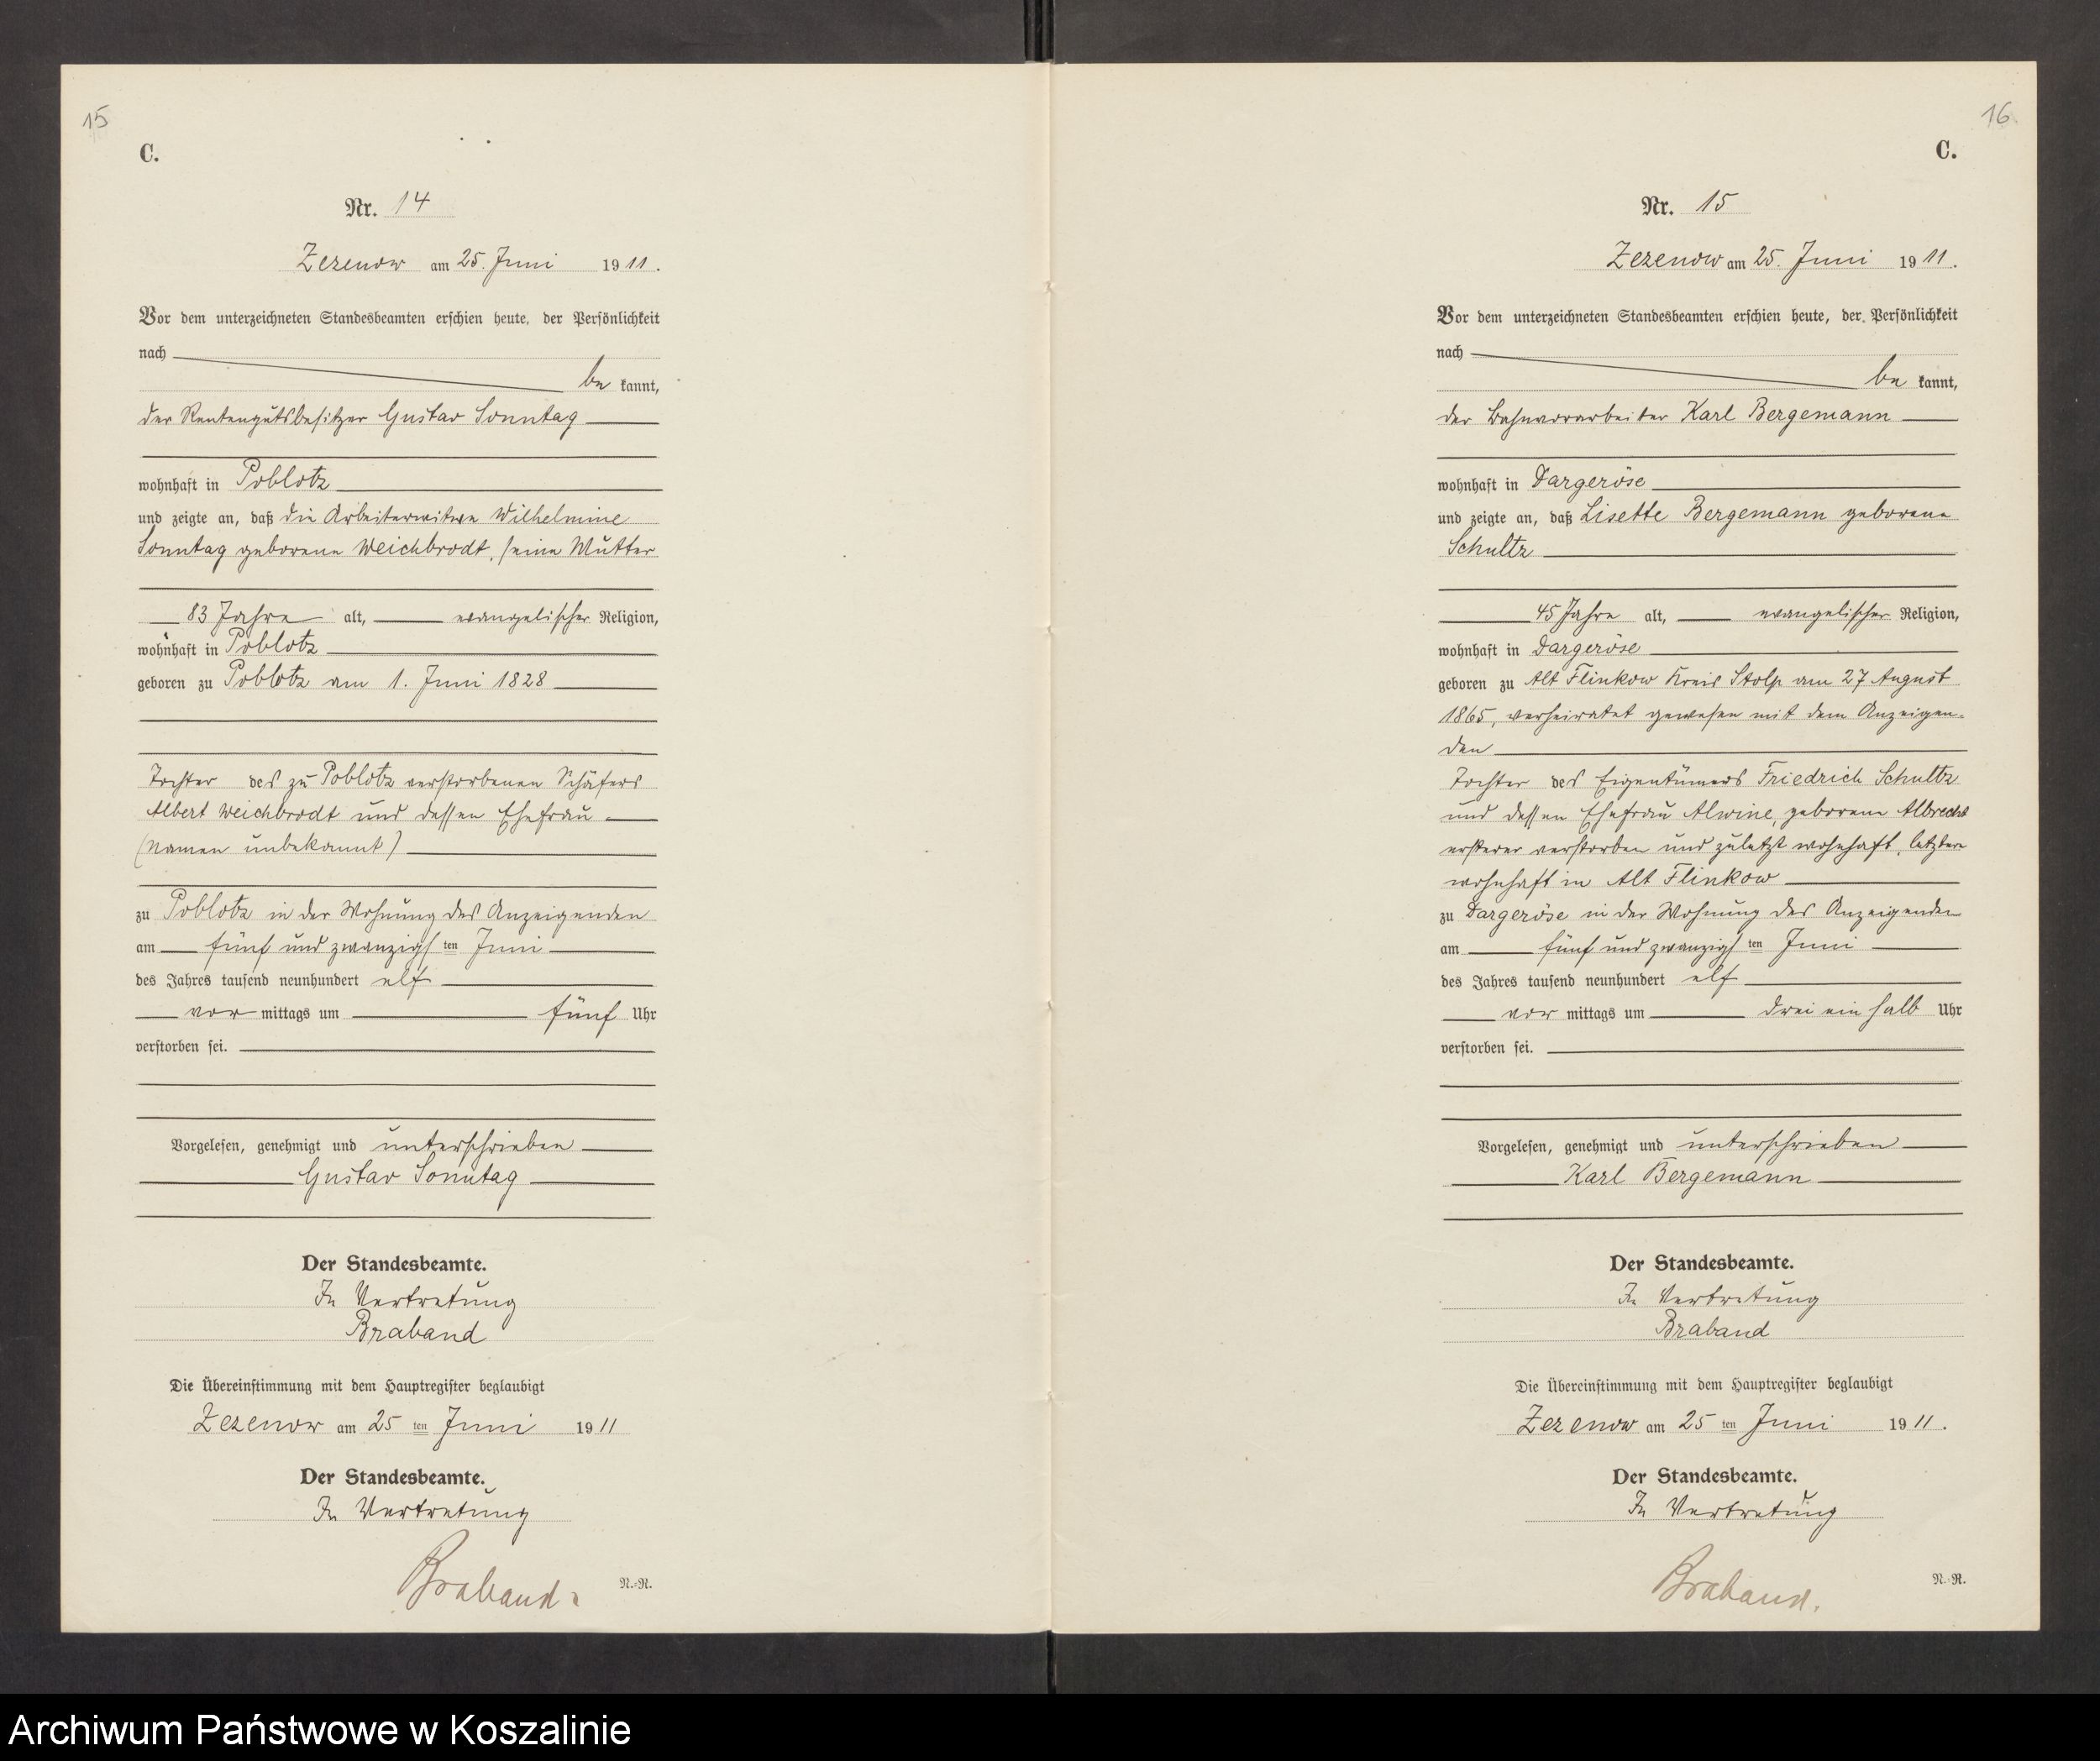 15
C.
Nr. 14
Zezenow am 25. Juni 1911.
Vor dem unterzeichneten Standesbeamten erschien heute, der Persönlichkeit
nach
be kannt,
der Rentengutsbesitzer Gustav Sonntag
wohnhaft in Poblotz
und zeigte an, daß die Arbeiterwitwe Wilhelmine
Sonntag geborene Weichbrodt, seine Mutter
83 Jahre alt, evangelischer Religion,
wohnhaft in Poblotz
geboren zu Poblotz am 1. Juni 1828
Tochter des zu Poblotz verstorbenen Schäfers
Albert Weichbrodt und dessen Ehefrau
(Namen unbekannt)
zu Poblotz in der Wohnung des Anzeigenden
am fünf und zwanzigsten Juni
des Jahres tausend neunhundert elf
vor mittags um fünf Uhr
verstorben sei.
Vorgelesen, genehmigt und unterschrieben
Gustav Sonntag
Der Standesbeamte.
In Vertretung
Braband
Die Übereinstimmung mit dem Hauptregister beglaubigt
Zezenow am 25 ten Juni 1911
Der Standesbeamte.
In Vertretung
Braband.
N.=R.
16
C.
Nr. 15
Zezenow am 25. Juni 1911.
Vor dem unterzeichneten Standesbeamten erschien heute, der Persönlichkeit
nach
be kannt,
der Bahnvorarbeiter Karl Bergemann
wohnhaft in Dargeröse
und zeigte an, daß Lisette Bergemann geborene
Schultz
45 Jahre alt, evangelischer Religion,
wohnhaft in Dargeröse
geboren zu Alt Flinkow Kreis Stolp am 27 August
1865, verheiratet gewesen mit dem Anzeigen=
den
Tochter des Eigentümers Friedrich Schultz
und dessen Ehefrau Alwine, geborene Albrecht
ersterer verstorben und zuletzt wohnhaft, letztere
wohnhaft in Alt Flinkow
zu Dargeröse in der Wohnung des Anzeigenden
am fünf und zwanzigsten Juni
des Jahres tausend neunhundert elf
vor mittags um drei ein halb Uhr
verstorben sei.
Vorgelesen, genehmigt und unterschrieben
Karl Bergemann
Der Standesbeamte.
In Vertretung
Braband
Die Übereinstimmung mit dem Hauptregister beglaubigt
Zezenow am 25 ten Juni 1911.
Der Standesbeamte.
In Vertretung
Braband.
N.=R.
Archiwum Państwowe w Koszalinie